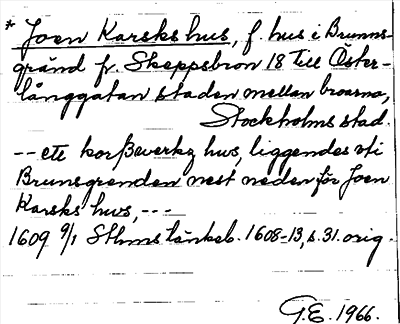 * Joen Karsks hus, f. hus i Brunns-
gränd fr. Skeppsbron 18 till Öster-
långgatan staden mellan broarna,
Stockholms stad.
-- ett korßverkz hus, liggendes vti
Brunsgrenden nest neden för Joen
Karsks hus, ---
1609 9/1 Sthms tänkeb. 1608-13, s. 31. orig.
G.E. 1966.